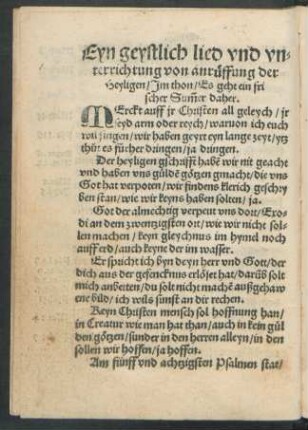 Eyn geystlich lied vnd vn-
terrichtung von anrüffung der
Heyligen/ Jm thon/ Es geht ein fri
scher Sum̄er daher.
MErckt auff jr Christen all geleych/ jr
seyd arm oder reych/ waruon ich euch
wil singen/ wir haben geyrrt eyn lange zeyt/ ytz
thüt es fürcher dringen/ ja dringen.
Der heyligen gschafft habē wir nit geacht
vnd haben vns güldē götzen gmacht/ die vns
Got hat verpoten/ wir findens klerich geschry
ben stan/ wie wir keyns haben solten/ ja.
Got der almechtig verpeut vns dott/ Exo-
di an dem zwentzigsten ort/ wie wir nicht sol-
len machen/ keyn gleychnus im hymel noch
auff erd/ auch keyne der im wasser.
Er spricht ich byn deyn herr vnd Gott/ der
dich aus der gefencknus erlöset hat/ darūb solt
mich anbetten/ du solt nicht machē außgehaw
ene bild/ ich wils sunst an dir rechen.
Keyn Christen mensch sol hoffnung han/
in Creatur wie man hat than/ auch in kein gül
den götzen/ sunder in den herren alleyn/ in den
sollen wir hoffen/ ja hoffen.
Am fünff vnd achtzigsten Psalmen stat/